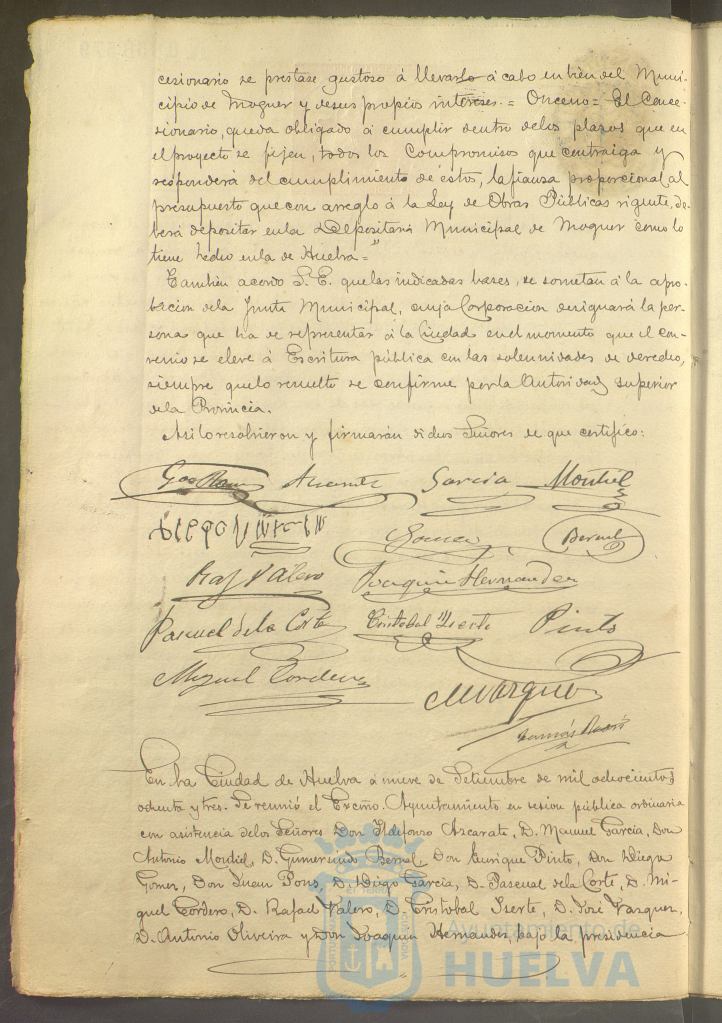 cesionario se prestase gustoso á llevarlo á cabo en bien del Muni-
cipio de Moguer y desus propios intereses.= Onceno= El Conce-
sionario, queda obligado á cumplir dentro delos plazos que en
el proyecto se fijen, todos los Compromisos que contraiga y
responderá del cumplimiento de éstos, la fianza proporcional al
presupuesto que con arreglo á la Ley de Obras Públicas vigente, de-
berá depositar enla Depositaria Municipal de Moguer como lo
tiene hecho enla de Huelva="
Tambien acordo S. E. quelas indicadas bases, se sometan á la apro-
bacion dela Junta Municipal, cuya Corporacion designará la per-
sona que ha de representar á la Ciudad enel momento que el con-
venio se eleve á Escritura pública con las solemnidades de derecho,
siempre quelo resuelto se confirme porla Autoridad superior
dela Provincia.
Asi lo resolvieron y firmarán dichos Señores de que certifico:
Garcia Montiel
Gomez Bernal
Raf Valero Joaquin Hernandez
Pascual de la Corte Cristobal Yserte Pinto
Miguel Cordero
MVazquez
En la Ciudad de Huelva á nueve de Setiembre de mil ochocientos
ochenta y tres. Se reunió el Excmo. Ayuntamiento en sesion pública ordinaria
con asistencia delos Señores Don Ildefonso Azcarate, D. Manuel Garcia, Don
Antonio Montiel, D. Gumersindo Bernal, Don Enrique Pinto, Don Diego
Gomez, Don Juan Pons, D. Diego Garcia, D. Pascual dela Corte, D. Mi-
guel Cordero, D. Rafael Valero, D. Cristobal Iserte, D. José Vazquez,
D. Antonio Oliveira y Don Joaquin Hernandez, bajo la presidencia
Ayuntamiento de
HUELVA